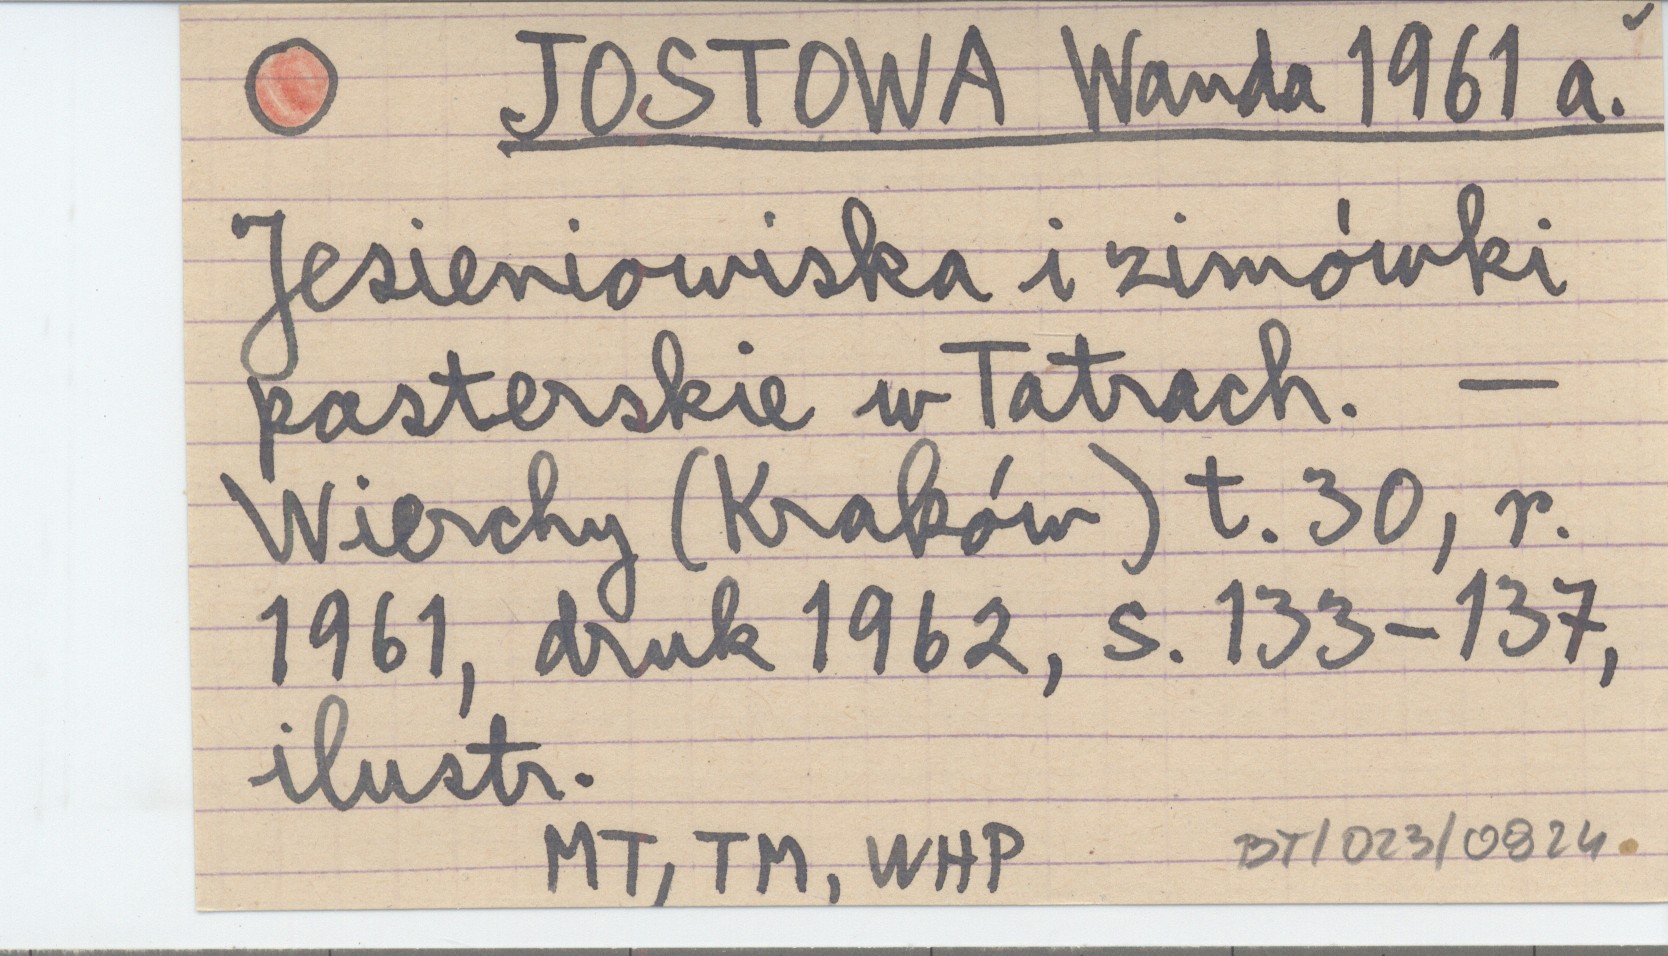 JOSTOWA Wanda 1961 a.
Jesieniowiska i zimówki
pasterskie w Tatrach. —
Wierchy (Kraków) t. 30, r.
1961, druk 1962, s. 133-137,
ilustr.
MT, TM, WHP
BT/023/0824